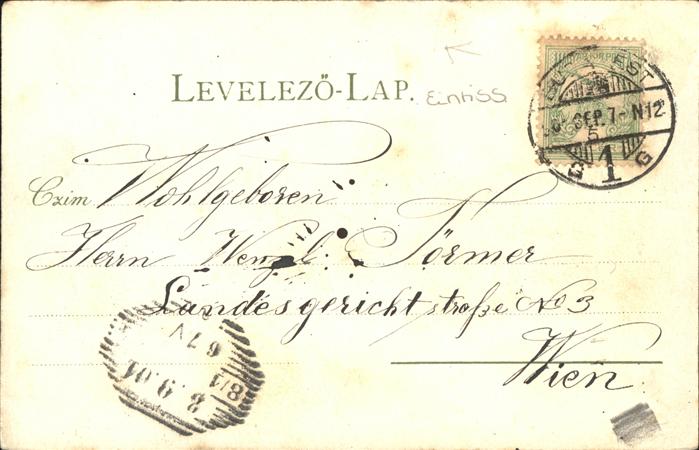 LEVELEZŐ-LAP.
Eintiss
EST
SEP. 7 - N12
5
G 1 G
Czim Wohlgeboren
Herrn Wenzl. Törmer
Landesgerichtstraße No 3
Wien
8/1
8. 9. 01
6.7V